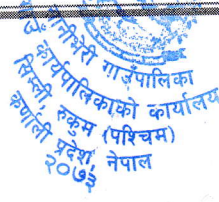 नीभेरी गाउँपालिका
कार्यपालिकाको कार्यालय
सिम्ली, रुकुम (पश्चिम)
कर्णाली प्रदेश, नेपाल
२०७३